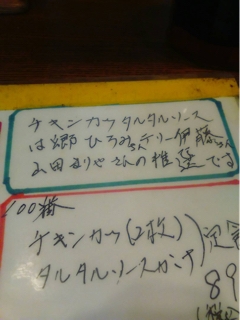 チキンカツタルタルソース
は郷ひろみさんテリー伊藤さん
山田まりやさんの推選です
100番
チキンカツ(2枚)定
タルタルソースガケ
89